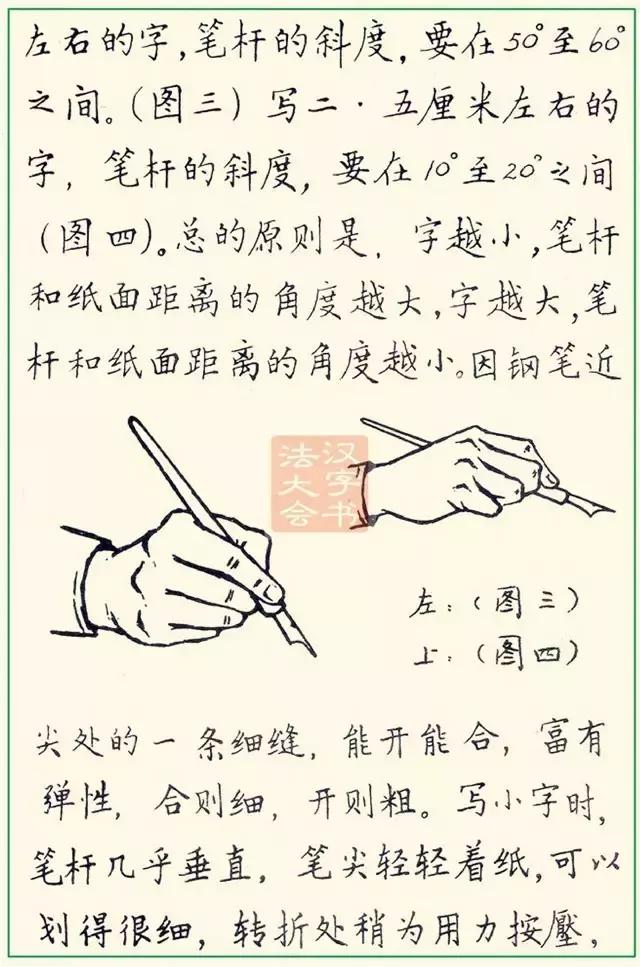 左右的字,笔杆的斜度,要在50°至60°
之间。(图三)写二·五厘米左右的
字,笔杆的斜度,要在10°至20°之间
(图四)。总的原则是,字越小,笔杆
和纸面距离的角度越大,字越大,笔
杆和纸面距离的角度越小。因钢笔近
汉字书
法大会
左:(图三)
上:(图四)
尖处的一条细缝,能开能合,富有
弹性,合则细,开则粗。写小字时,
笔杆几乎垂直,笔尖轻轻着纸,可以
划得很细,转折处稍为用力按壓,